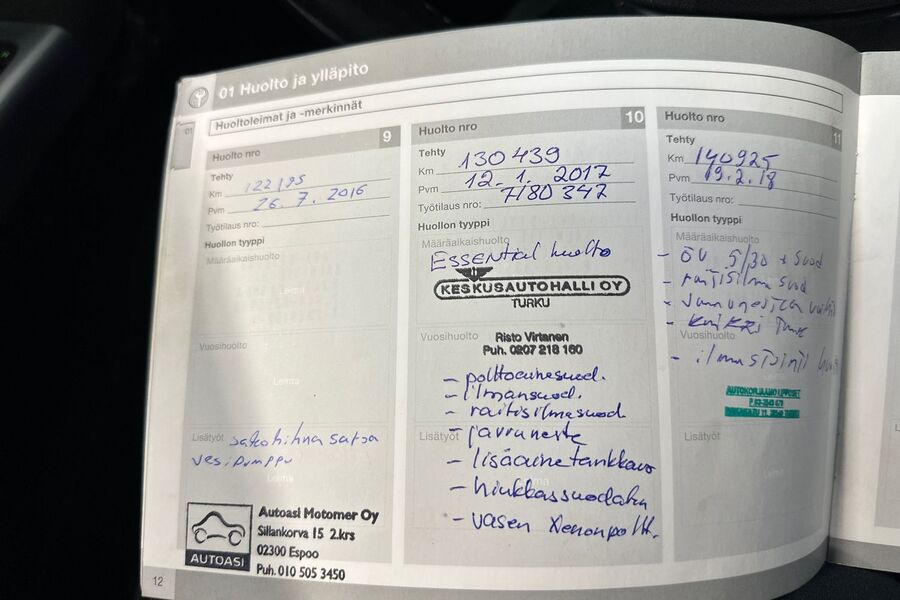 01 Huolto ja ylläpito
Huoltoleimat ja -merkinnät
01
Huolto nro 9
Tehty
Km 122195
Pvm 26. 7. 2016
Työtilaus nro:
Huollon tyyppi
Määräaikaishuolto
Leima
Vuosihuolto
Leima
Lisätyöt jakohihna sarja
vesipumppu
Leima
AUTOASI
Autoasi Motomer Oy
Sillankorva 15 2.krs
02300 Espoo
Puh. 010 505 3450
12
Huolto nro 10
Tehty
Km 130439
Pvm 12. 1. 2017
Työtilaus nro: 7180347
Huollon tyyppi
Määräaikaishuolto
Essential huolto
KESKUSAUTOHALLI OY
TURKU
Vuosihuolto
Risto Virtanen
Puh. 0207 218 160
- polttoainesuod.
- ilmansuod.
- raitisilmasuod
Lisätyöt - jarruneste
- lisäainetankkaus
Leima
- hiukkassuodatin
- vasen Xenonpoltt.
Huolto nro 11
Tehty
Km 140925
Pvm 19.2.18
Työtilaus nro:
Huollon tyyppi
Määräaikaishuolto
- öv 5/30 + suod
- raitisilma suod
- jarrunesteen
Vuosihuolto
- ilmastointi
AUTOKORJAAMO
Lisätyöt